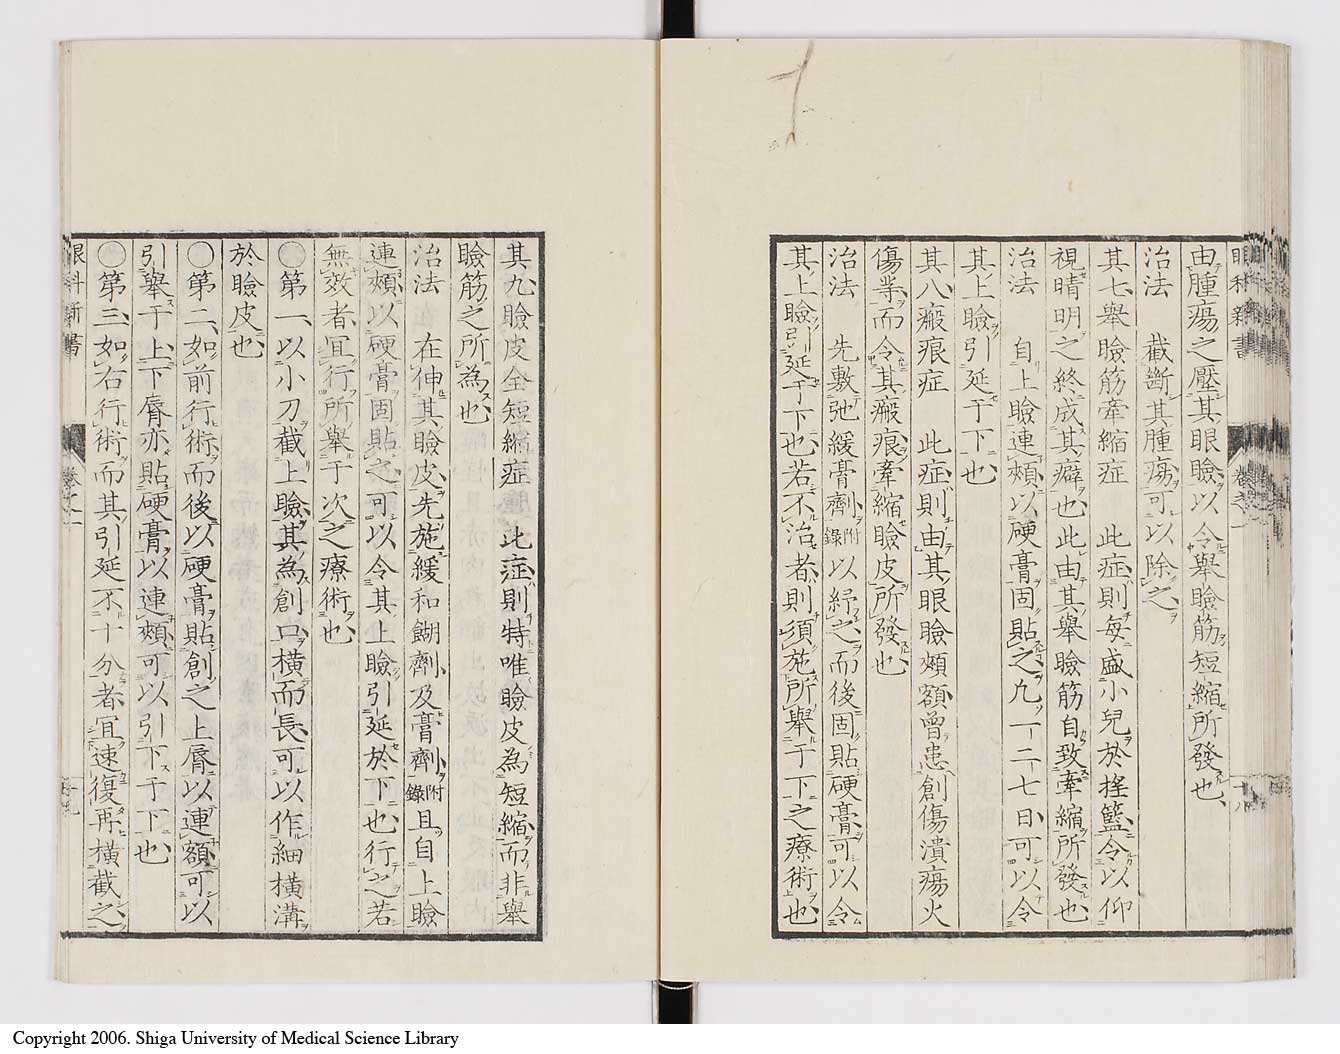 眼科新書
由腫瘍之壓其眼瞼以令舉瞼筋短縮所發也
治法　截斷其腫瘍可以除之
其七舉瞼筋牽縮症　此症則每盛小兒於搖籃令以仰
視晴明之終成其癖也此由其舉瞼筋自致牽縮所發也
治法　自上瞼連頰以硬膏固貼之凡一二七日可以令
其上瞼引延于下也
其八瘢痕症　此症則由其眼瞼頰額曾患創傷潰瘍火
傷等而令其瘢痕牽縮瞼皮所發也
治法　先敷弛緩膏劑附錄以紓之而後固貼硬膏可以令
其上瞼引延于下也若不治者則須施所舉于下之療術也
其九瞼皮全短縮症　此症則特唯瞼皮為短縮而非舉
瞼筋之所為也
治法　在伸其瞼皮先施緩和餬劑及膏劑附錄且自上瞼
連頰以硬膏固貼之可以令其上瞼引延於下也行之若
無效者宜行所舉于次之療術也
〇第一以小刀截上瞼其為創口橫而長可以作細橫溝
於瞼皮也
〇第二如前行術而後以硬膏貼創之上脣以連額可以
引舉于上下脣亦貼硬膏以連頰可以引下于下也
〇第三如右行術而其引延不十分者宜速復再橫截之
眼科新書
Copyright 2006. Shiga University of Medical Science Library